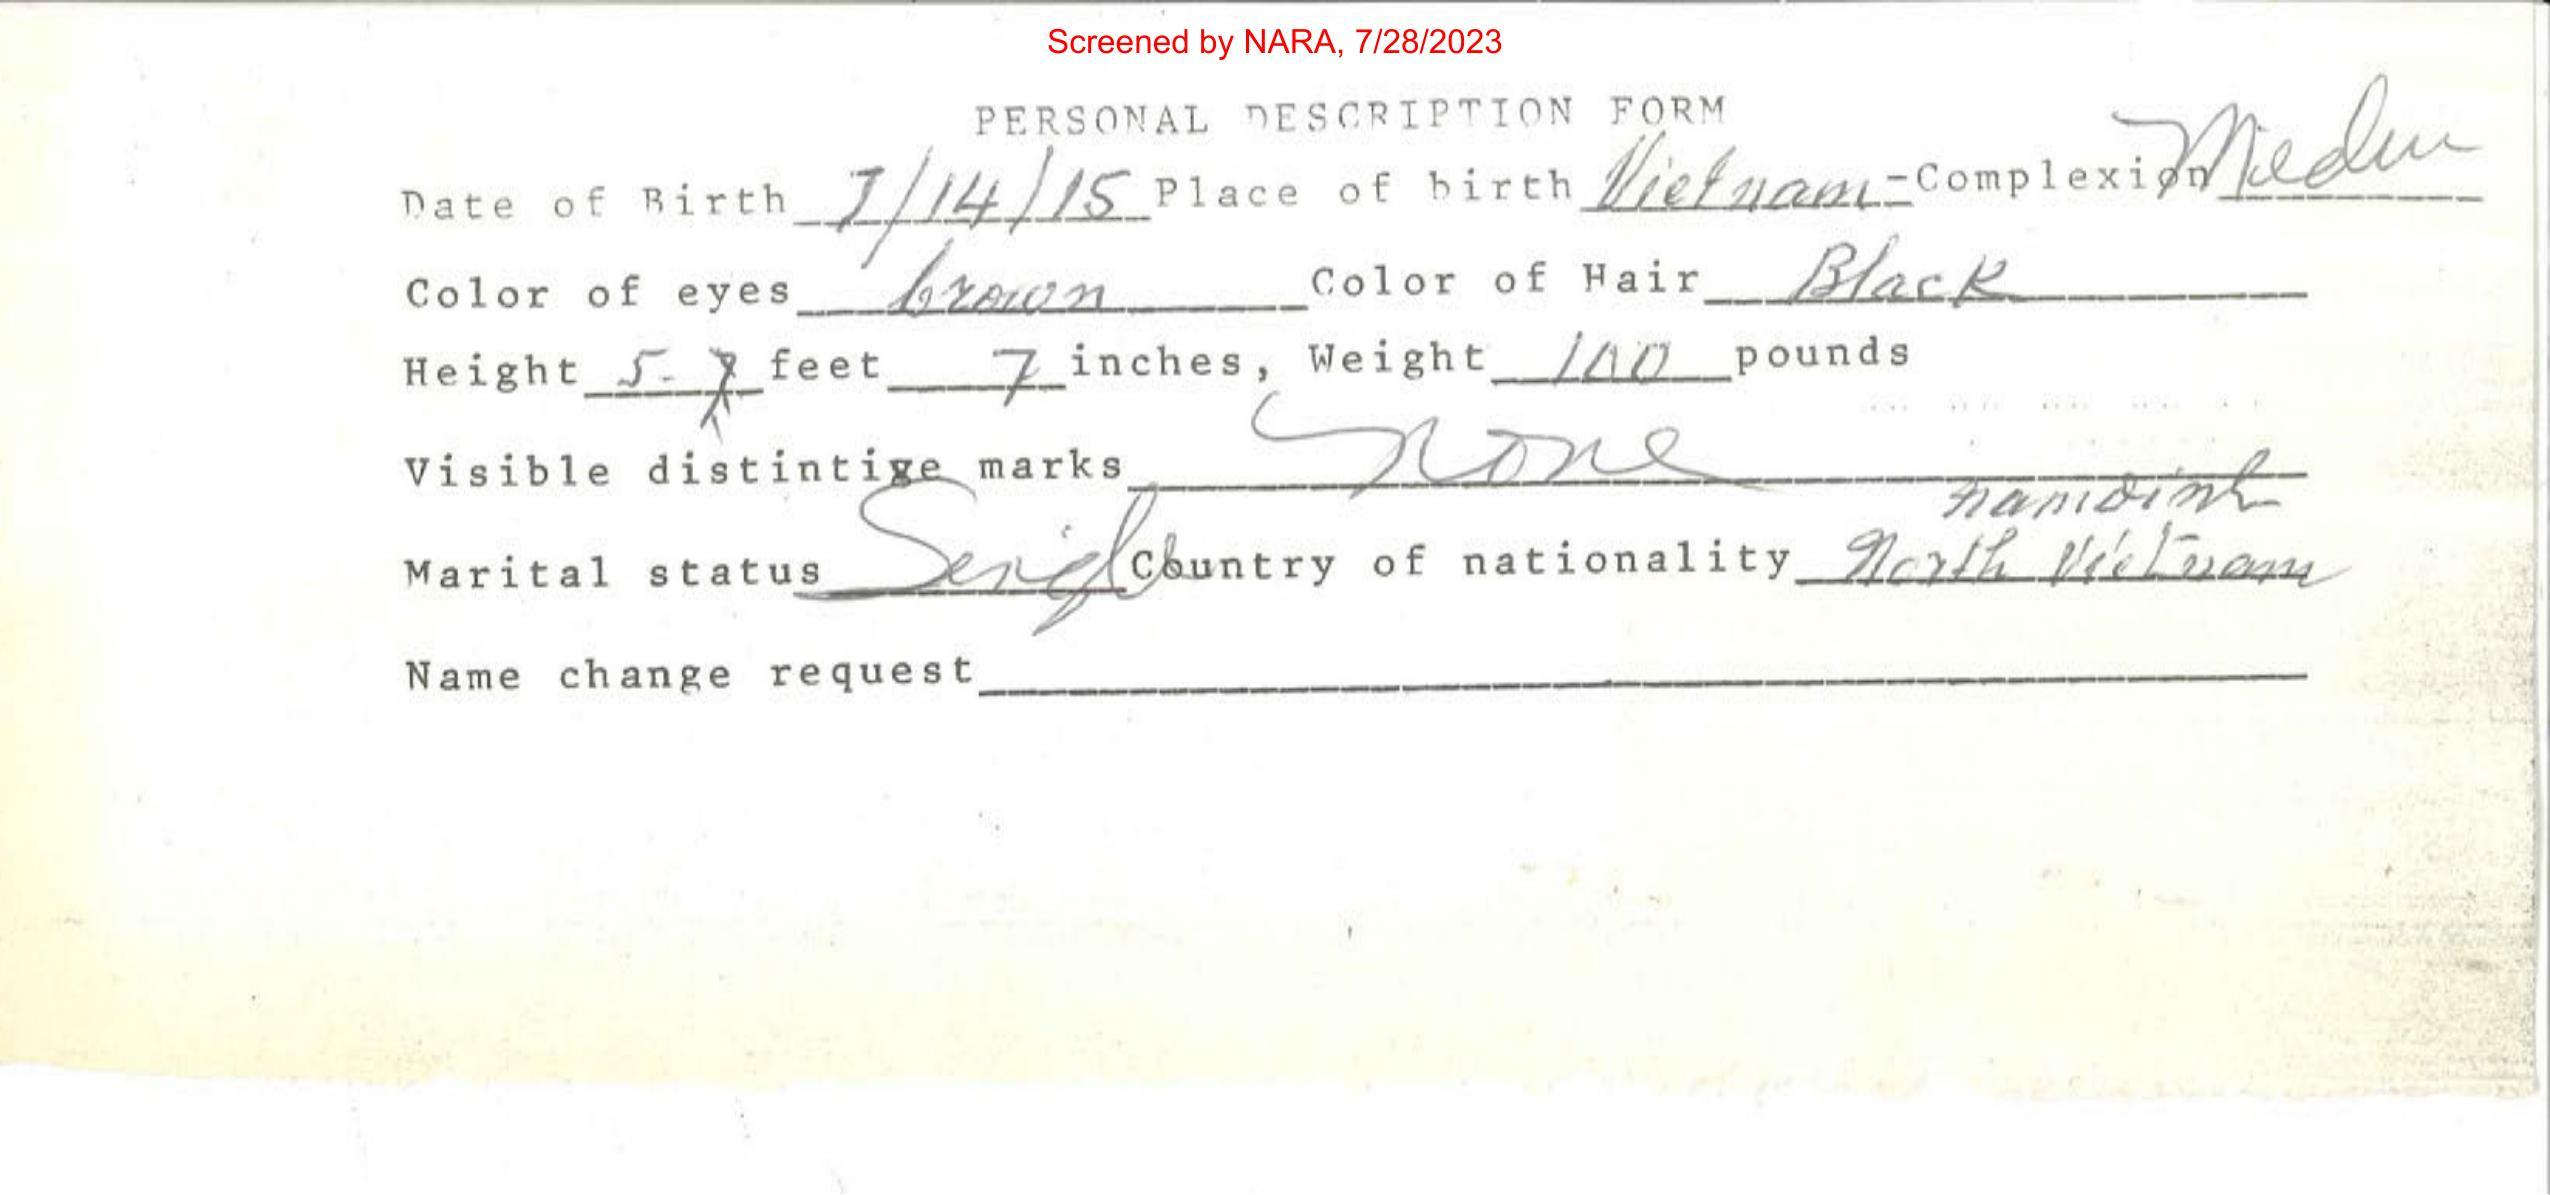 Screened by NARA, 7/28/2023
PERSONAL DESCRIPTION FORM
Date of Birth 7/14/15 Place of birth Vietnam - Complexion
Color of eyes brown Color of Hair Black
Height 5 - 7 feet 7 inches, Weight 100 pounds
Visible distintive marks none
namdinh
Marital status Country of nationality North Vietnam
Name change request